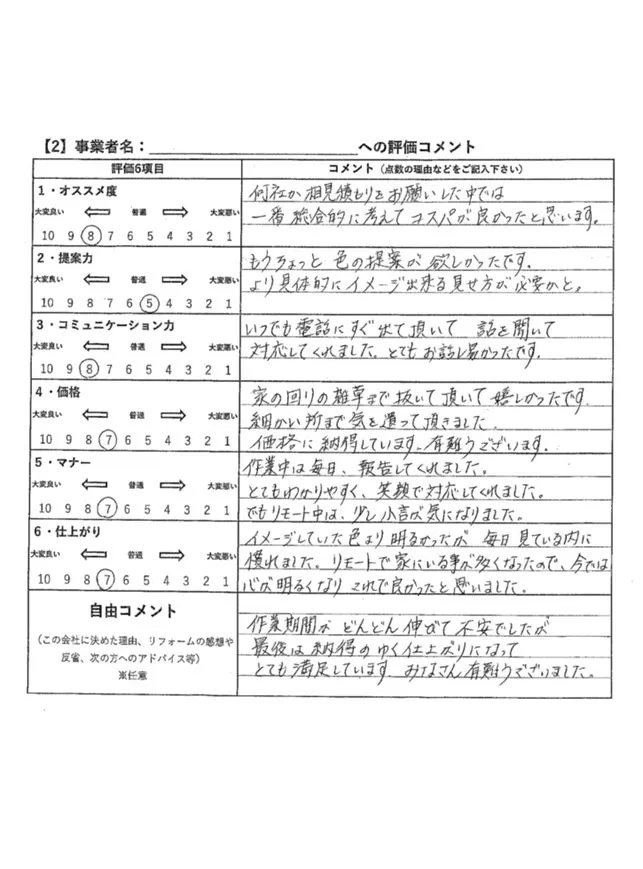 【2】事業者名：＿＿＿＿＿＿＿＿＿＿＿＿への評価コメント
評価6項目
コメント（点数の理由などをご記入下さい）
1・オススメ度
大変良い ⇐ 普通 ⇒ 大変悪い
10 9 8 7 6 5 4 3 2 1
何社か相見積もりをお願いした中では
一番総合的に考えてコスパが良かったと思います。
2・提案力
大変良い ⇐ 普通 ⇒ 大変悪い
10 9 8 7 6 5 4 3 2 1
もうちょっと色の提案が欲しかったです。
より具体的にイメージ出来る見せ方が必要かと。
3・コミュニケーション力
大変良い ⇐ 普通 ⇒ 大変悪い
10 9 8 7 6 5 4 3 2 1
いつでも電話にすぐ出て頂いて 話を聞いて
対応してくれました。とてもお話し易かったです。
4・価格
大変良い ⇐ 普通 ⇒ 大変悪い
10 9 8 7 6 5 4 3 2 1
家の回りの雑草まで抜いて頂いて嬉しかったです。
細かい所まで気を遣って頂きました。
価格に納得しています。有難うございます。
5・マナー
大変良い ⇐ 普通 ⇒ 大変悪い
10 9 8 7 6 5 4 3 2 1
作業中は毎日、報告してくれました。
とてもわかりやすく、笑顔で対応してくれました。
でもリモート中は、少し小言が気になりました。
6・仕上がり
大変良い ⇐ 普通 ⇒ 大変悪い
10 9 8 7 6 5 4 3 2 1
イメージしていた色より明るかったが 毎日見ている内に
慣れました。リモートで家にいる事が多くなったので、今では
心が明るくなりこれで良かったと思いました。
自由コメント
（この会社に決めた理由、リフォームの感想や
反省、次の方へのアドバイス等）
※任意
作業期間がどんどん伸びて不安でしたが
最後は納得のゆく仕上がりになって
とても満足しています。みなさん有難うございました。